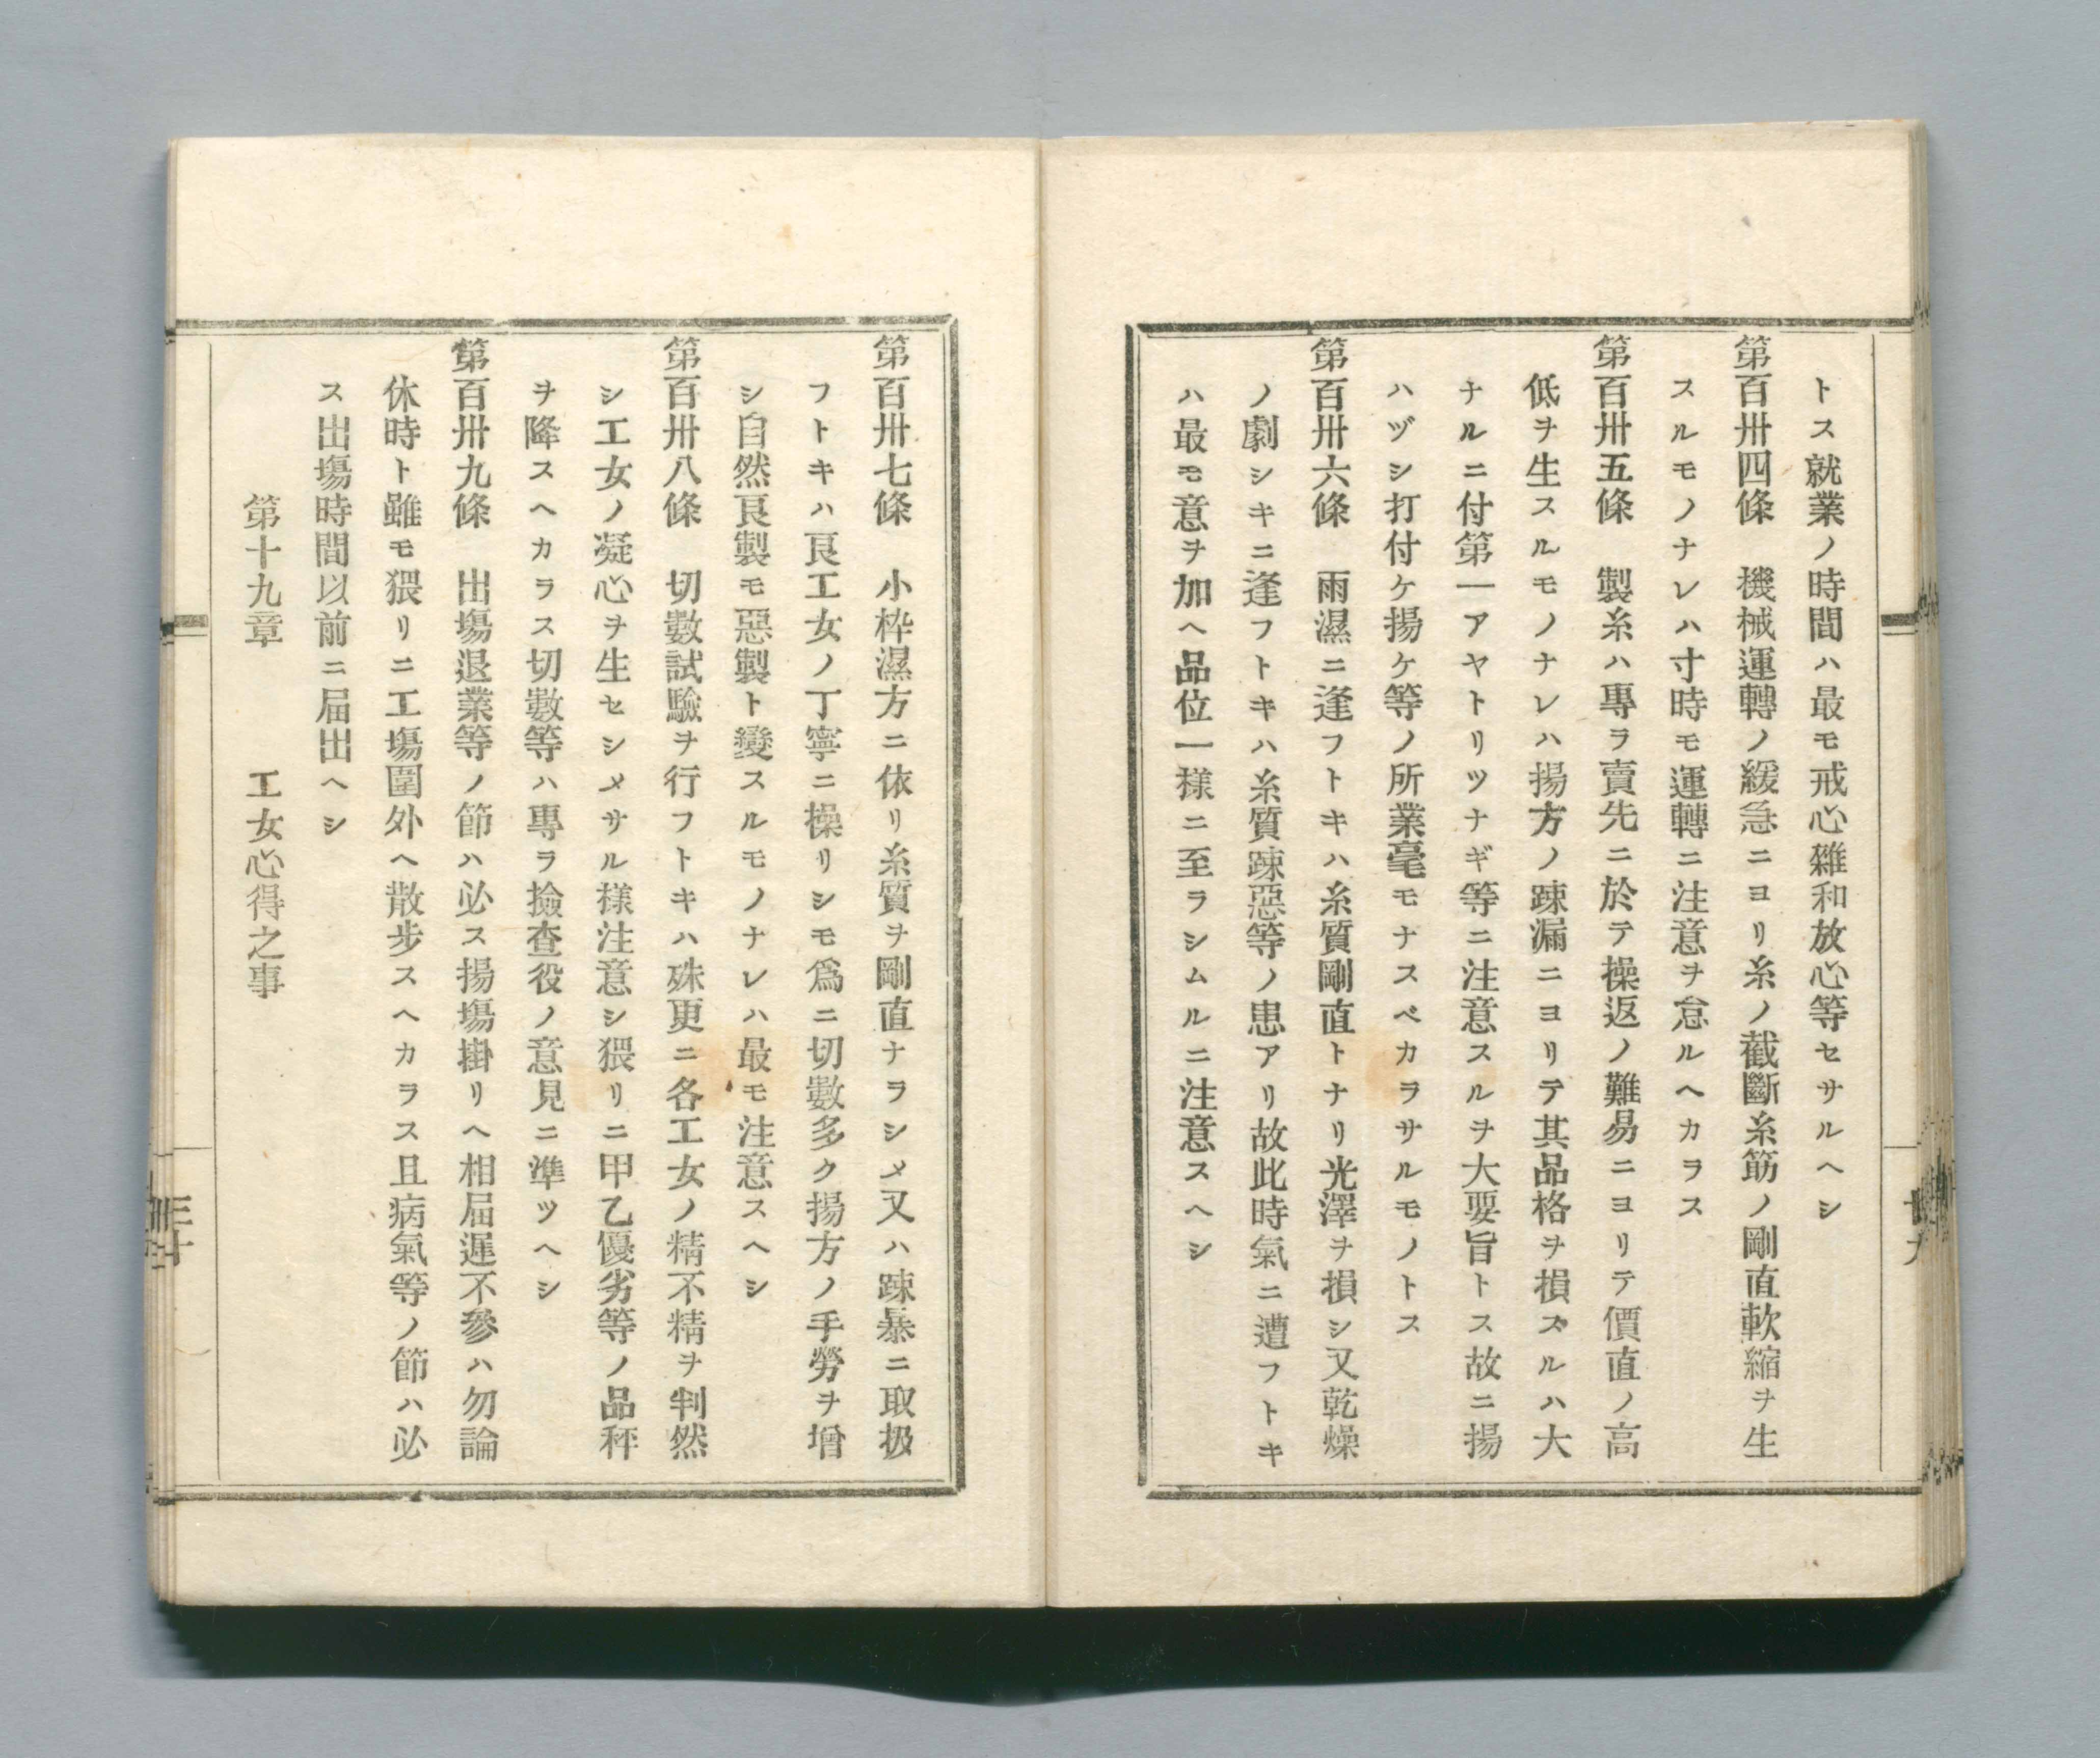 トス就業ノ時間ハ最モ戒心雜和放心等セサルヘシ
第百卅四條　機械運轉ノ緩急ニヨリ糸ノ截斷糸筋ノ剛直軟縮ヲ生
スルモノナレハ寸時モ運轉ニ注意ヲ怠ルヘカラス
第百卅五條　製糸ハ專ラ賣先ニ於テ操返ノ難易ニヨリテ價直ノ高
低ヲ生スルモノナレハ揚方ノ踈漏ニヨリテ其品格ヲ損スルハ大
ナルニ付第一アヤトリツナギ等ニ注意スルヲ大要旨トス故ニ揚
ハヅシ打付ケ揚ケ等ノ所業毫モナスベカラサルモノトス
第百卅六條　雨濕ニ逢フトキハ糸質剛直トナリ光澤ヲ損シ又乾燥
ノ劇シキニ逢フトキハ糸質踈惡等ノ患アリ故此時氣ニ遭フトキ
ハ最モ意ヲ加ヘ品位一樣ニ至ラシムルニ注意スヘシ
第百卅七條　小枠濕方ニ依リ糸質ヲ剛直ナラシメ又ハ踈暴ニ取扱
フトキハ良工女ノ丁寧ニ操リシモ爲ニ切數多ク揚方ノ手勞ヲ增
シ自然良製モ惡製ト變スルモノナレハ最モ注意スヘシ
第百卅八條　切數試驗ヲ行フトキハ殊更ニ各工女ノ精不精ヲ判然
シ工女ノ凝心ヲ生セシメサル樣注意シ猥リニ甲乙優劣等ノ品秤
ヲ降スヘカラス切數等ハ專ラ撿查役ノ意見ニ準ツヘシ
第百卅九條　出塲退業等ノ節ハ必ス揚塲掛リヘ相屆遲不參ハ勿論
休時ト雖モ猥リニ工塲圍外ヘ散步スヘカラス且病氣等ノ節ハ必
ス出塲時間以前ニ屆出ヘシ
第十九章　　工女心得之事
三十